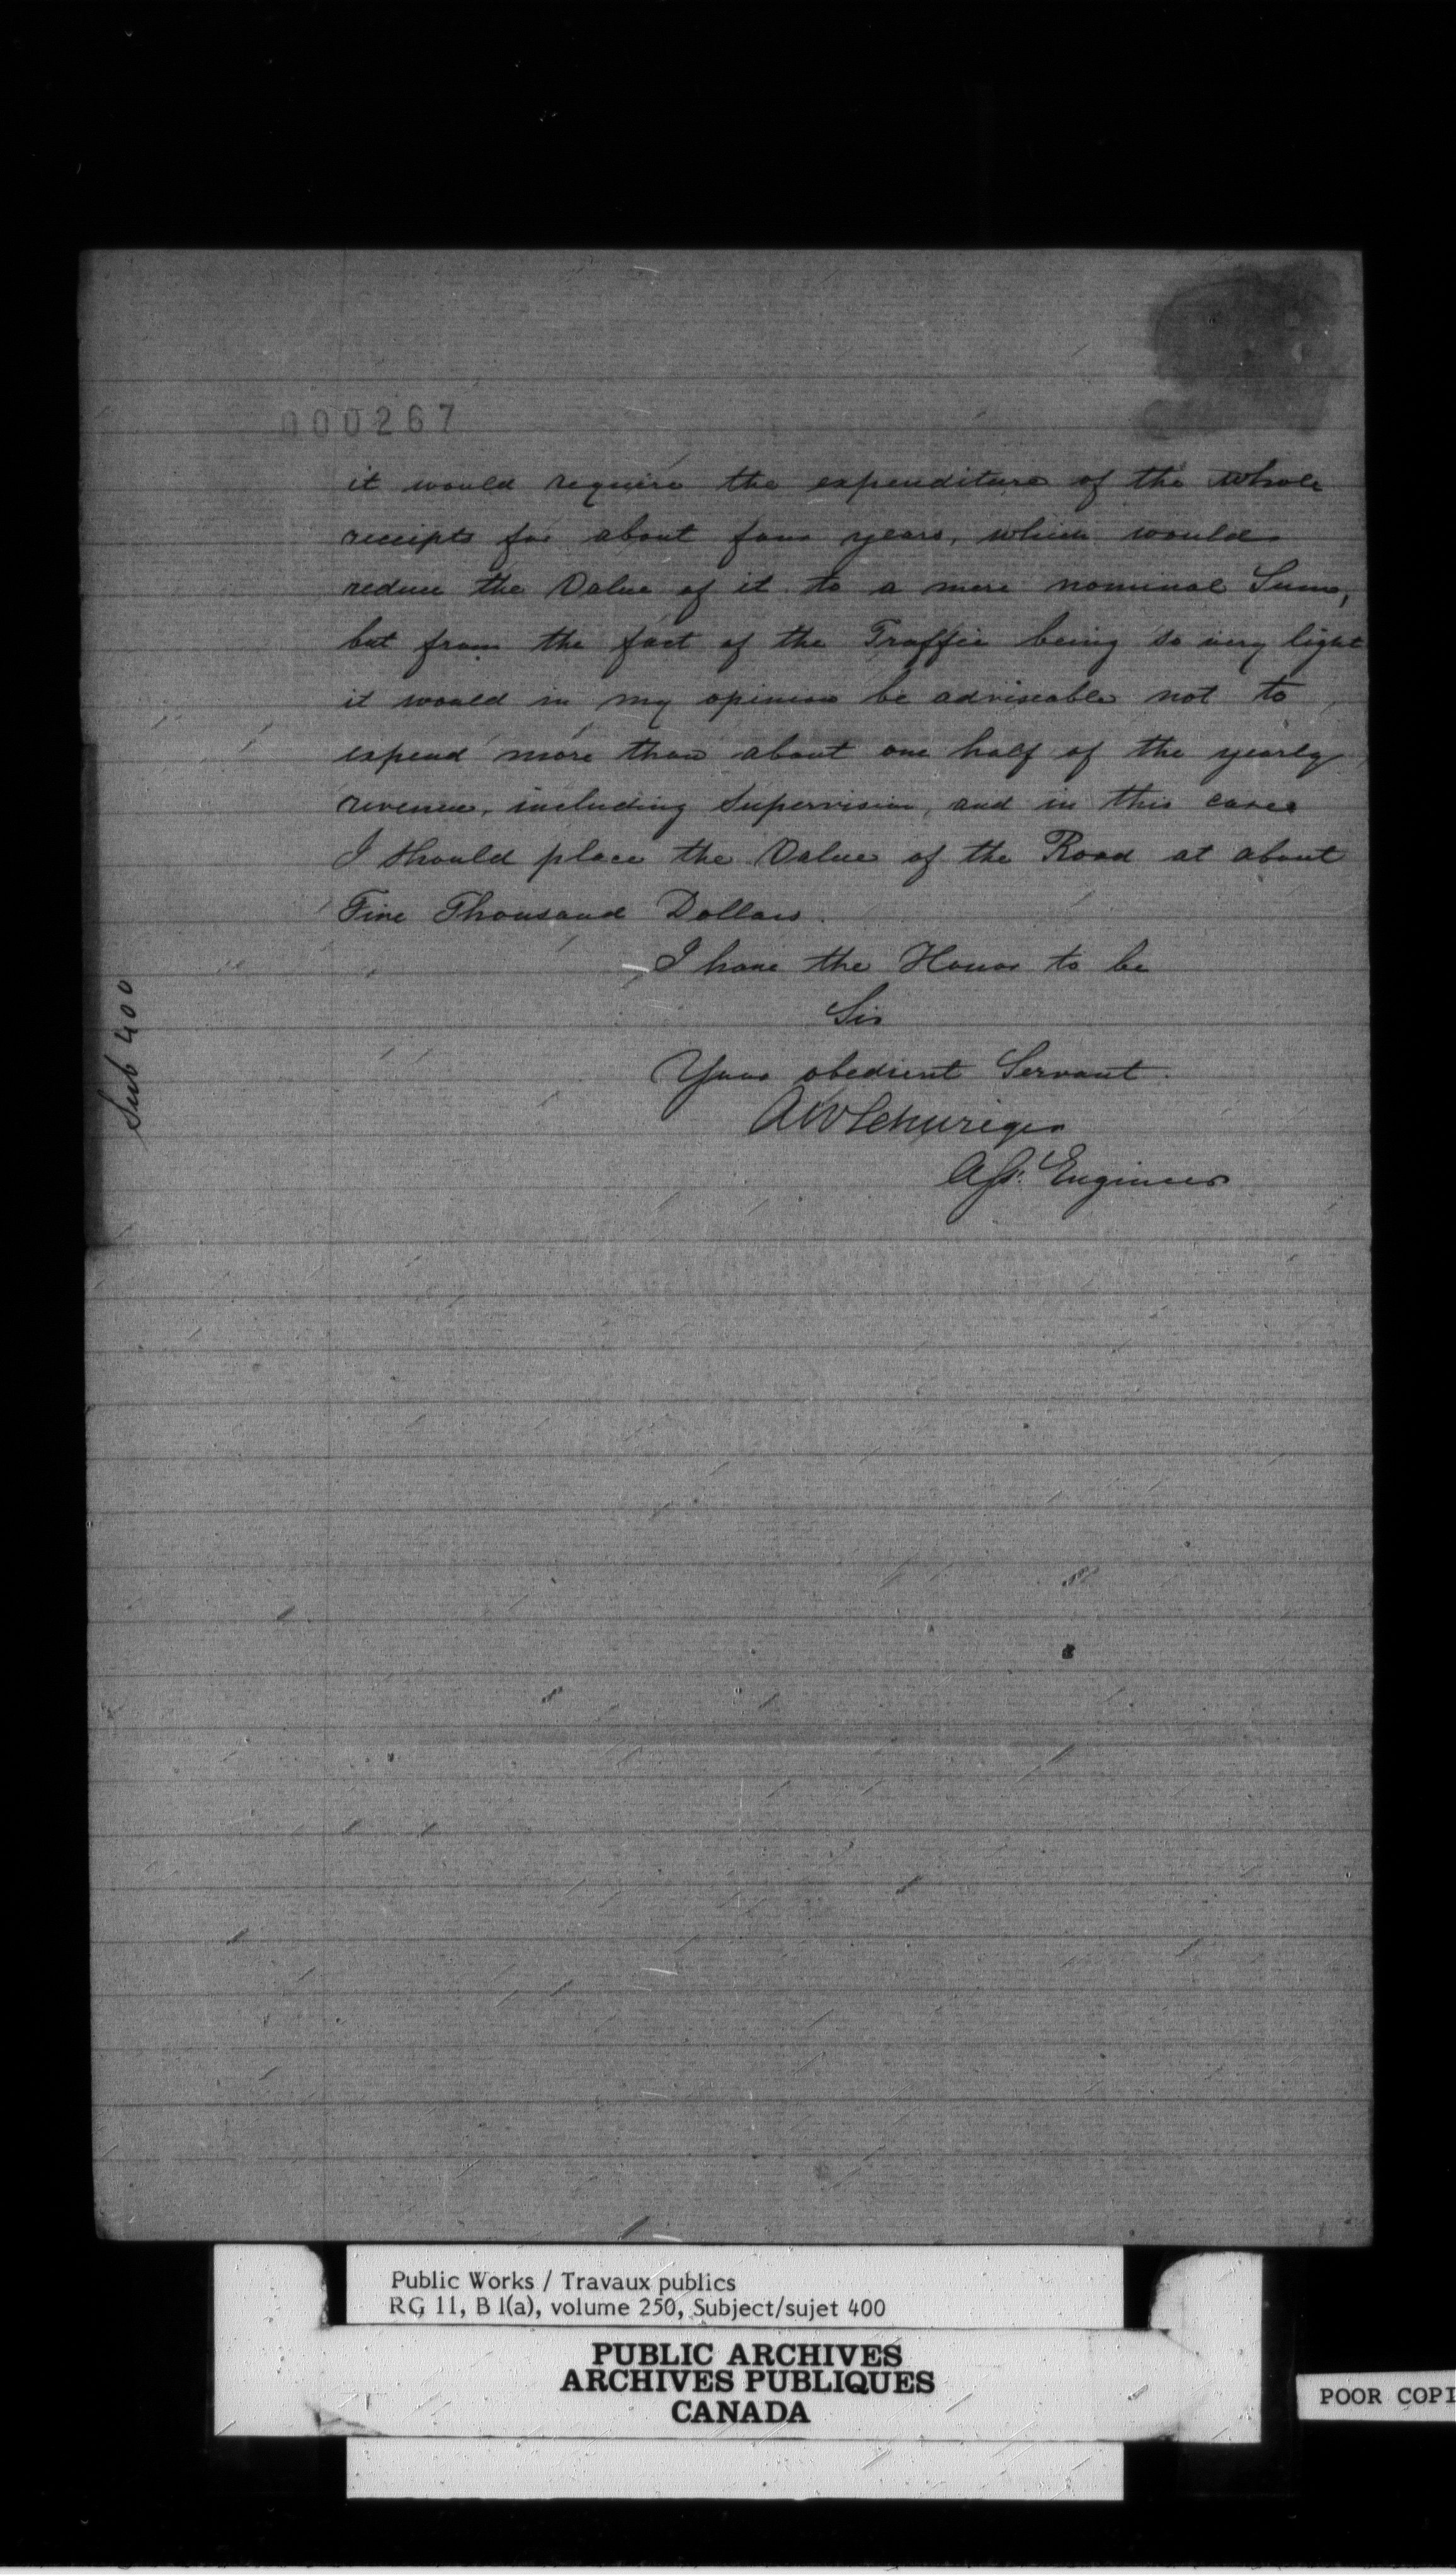 000267
it would require the expenditure of the whole
receipts for about four years, which would
reduce the Value of it to a mere nominal Sum,
but from the fact of the Traffic being so very light
it would in my opinion be adviseable not to
expend more than about one half of the yearly
revenue, including Supervision, and in this case
I should place the Value of the Road at about
Five Thousand Dollars.
I have the Honor to be
Sir
Your obedient Servant
Asst. Engineer
Sub 400
Public Works / Travaux publics
RG 11, B 1(a), volume 250, Subject/sujet 400
PUBLIC ARCHIVES
ARCHIVES PUBLIQUES
CANADA
POOR COPI